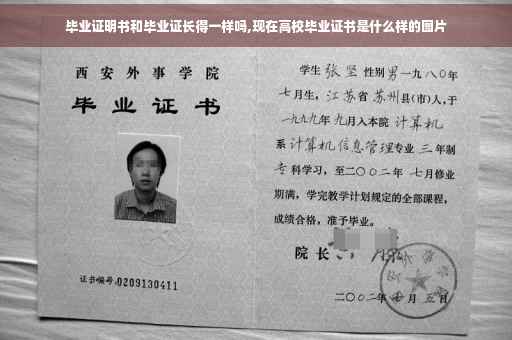 毕业证明书和毕业证长得一样吗,现在高校毕业证书是什么样的图片
西安外事学院
毕业证书
证书编号:0209130411
学生 张坚 性别男一九八〇年
七月生,江苏省苏州县(市)人,于
一九九九年九月入本院 计算机
系计算机信息管理专业 三 年制
专科学习,至二〇〇二年 七月修业
期满,学完教学计划规定的全部课程,
成绩合格,准予毕业。
院长
二〇〇二年 月五日